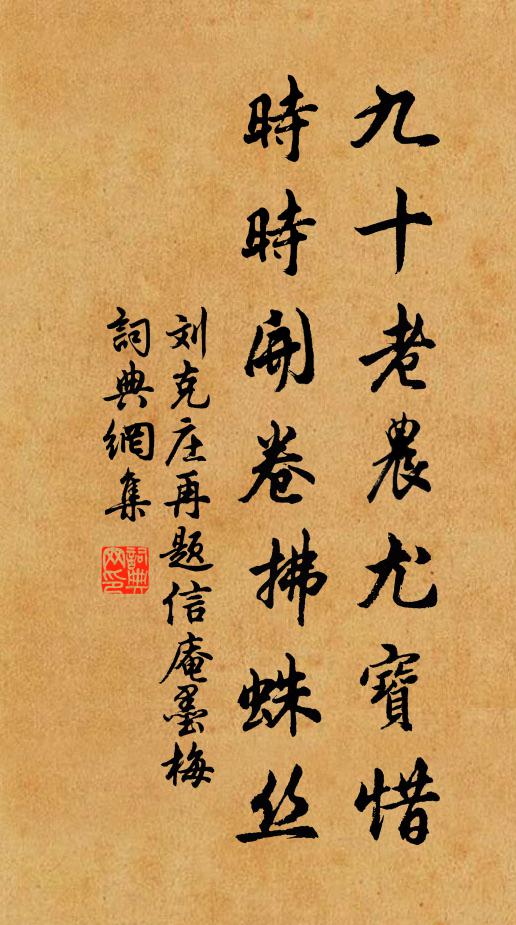 九十老農尤寶惜
時時開卷拂蛛丝
刘克庄再题信庵墨梅
詞典網集
詞典網印